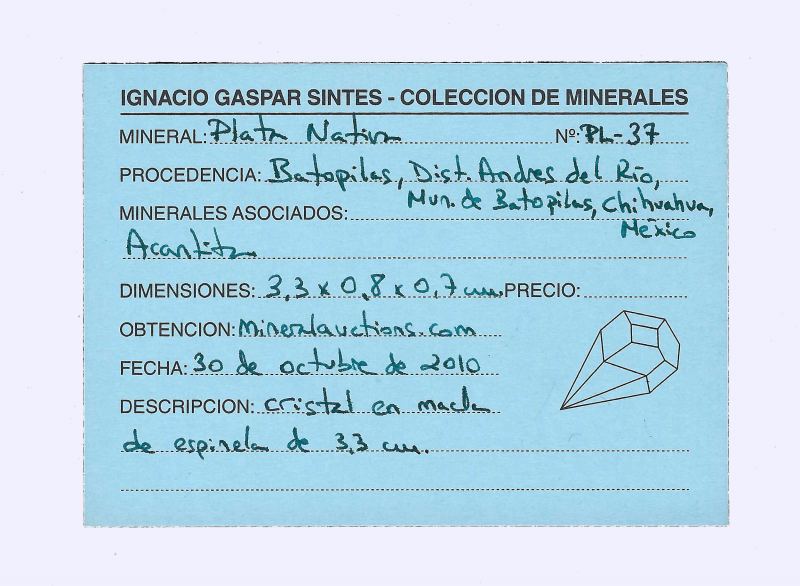 IGNACIO GASPAR SINTES - COLECCION DE MINERALES
MINERAL: Plata Nativa Nº: PL-37
PROCEDENCIA: Batopilas, Dist. Andres del Río,
Mun. de Batopilas, Chihuahua,
México
MINERALES ASOCIADOS:
Acantita
DIMENSIONES: 3,3 x 0,8 x 0,7 cm. PRECIO:
OBTENCION: mineralauctions.com
FECHA: 30 de octubre de 2010
DESCRIPCION: cristal en macla
de espinela de 3,3 cm.